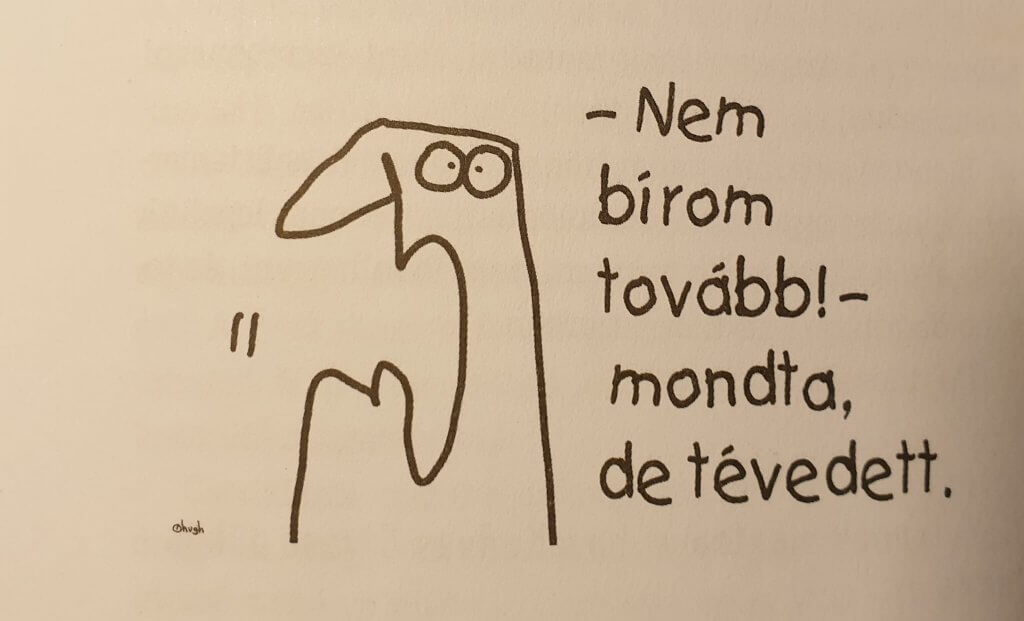 - Nem
bírom
tovább! -
mondta,
de tévedett.
©hugh